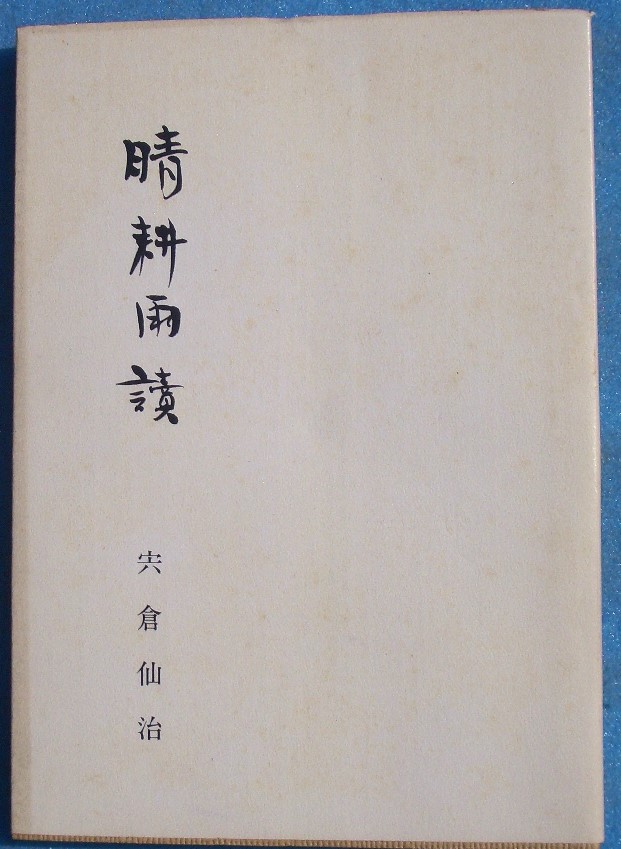 晴耕雨讀
宍倉仙治